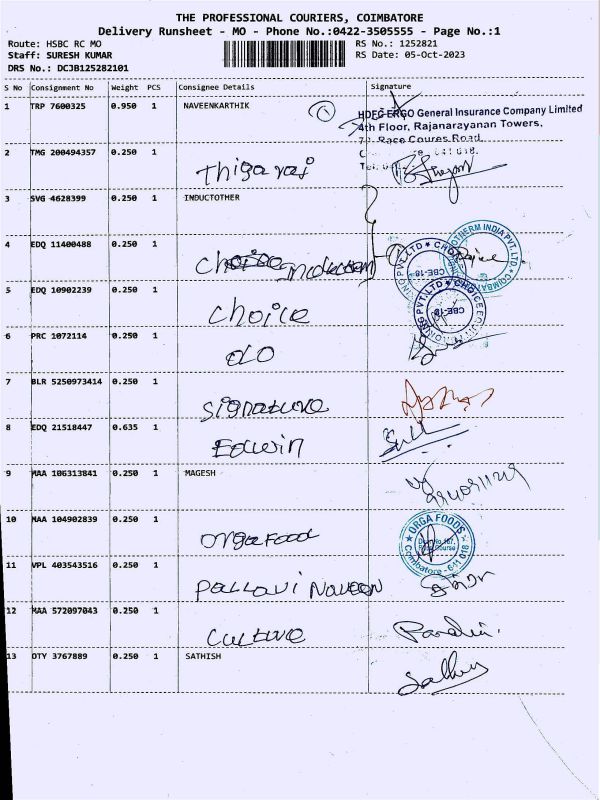 THE PROFESSIONAL COURIERS, COIMBATORE
Delivery Runsheet - MO - Phone No.:0422-3505555 - Page No.:1
Route: HSBC RC MO
RS No.: 1252821
Staff: SURESH KUMAR
RS Date: 05-Oct-2023
DRS No.: DCJB125282101
S No Consignment No Weight PCS Consignee Details Signature
1 TRP 7600325 0.950 1 NAVEENKARTHIK
HDFC ERGO General Insurance Company Limited
4th Floor, Rajanarayanan Towers,
Race Coures Road,
2 TMG 200494357 0.250 1
Thigaraj
3 SVG 4628399 0.250 1 INDUCTOTHER
4 EDQ 11400488 0.250 1
5 EDQ 10902239 0.250 1
choice
6 PRC 1072114 0.250 1
do
7 BLR 5250973414 0.250 1
signature
8 EDQ 21518447 0.635 1
Edwin
9 MAA 106313841 0.250 1 MAGESH
10 MAA 104902839 0.250 1
orga Food
ORGA FOODS
Race Course
Coimbatore - 641 018
11 VPL 403543516 0.250 1
Pallavi Naveen
12 MAA 572097043 0.250 1
culture
13 OTY 3767889 0.250 1 SATHISH
Sathis